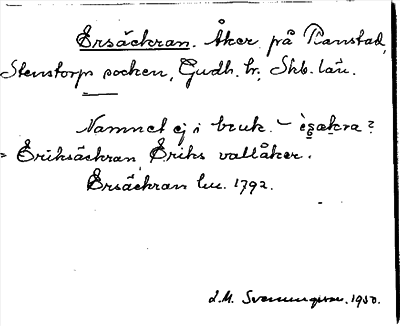 Ersäckran. Åker på Ranstad,
Stenstorps socken, Gudh. hr, Skb. län.
Namnet ej i bruk. –
= Eriksäckran Eriks vallåker.
Ersäckran lm. 1792.
L.M. Svenungsson. 1930.